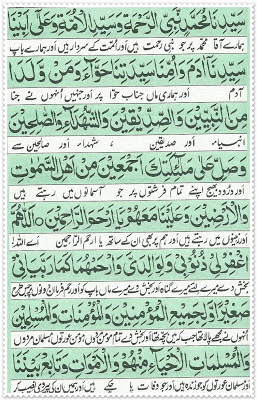 سَيِّدِنَا مُحَمَّدٍ نَّبِيِّ الرَّحْمَةِ وَسَيِّدِ الْاُمَّةِ وَعَلٰى اَبِيْنَا
ہمارے آقا محمد پر جو نبی رحمت ہیں اور امت کے سردار ہیں اور ہمارے باپ
سَيِّدِنَا اٰدَمَ وَاُمِّنَا سَيِّدَتِنَا حَوَّآءَ وَمَنْ وَّلَدَا
آدم اور ہماری ماں جناب حوا پر اور جنہیں انہوں نے جنا
مِنَ النَّبِيِّيْنَ وَالصِّدِّيْقِيْنَ وَالشُّهَدَآءِ وَالصّٰلِحِيْنَ
انبیاء اور صدیقین ، شہداء اور صالحین سے
وَصَلِّ عَلٰى مَلٰٓئِكَتِكَ اَجْمَعِيْنَ مِنْ اَهْلِ السَّمٰوٰتِ
اور درود بھیج اپنے تمام فرشتوں پر جو آسمانوں میں رہتے ہیں
وَالْاَرَضِيْنَ وَعَلَيْنَا مَعَهُمْ يَآ اَرْحَمَ الرَّاحِمِيْنَ ۞ اَللّٰهُمَّ
اور زمینوں میں رہتے ہیں اور ہم پر بھی ان کے ساتھ یا ارحم الراحمین اے اللہ!
اغْفِرْ لِيْ ذُنُوْبِيْ وَلِوَالِدَيَّ وَارْحَمْهُمَا كَمَا رَبَّيَانِيْ
بخش دے میرے لئے میرے گناہ اور بخش دے میرے ماں باپ کو اور رحم فرما ان دونوں پر جس طرح
صَغِيْرًا وَلِجَمِيْعِ الْمُؤْمِنِيْنَ وَالْمُؤْمِنَاتِ وَالْمُسْلِمِيْنَ
انہوں نے مجھے پالا تھا جب کہ میں بچہ تھا اور بخش دے تمام مومن مردوں اور مومن عورتوں مسلمان مردوں
وَالْمُسْلِمَاتِ الْاَحْيَآءِ مِنْهُمْ وَالْاَمْوَاتِ وَتَابِعْ بَيْنَنَا
اور مسلمان عورتوں کو جو زندہ ہیں اور جو وفات پا چکے ہیں اور ہمیں ان کی پیروی نصیب کر